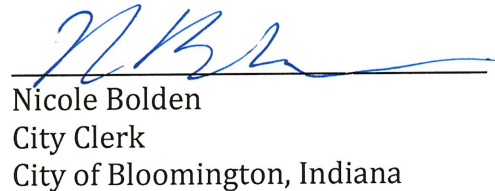 Nicole Bolden
City Clerk
City of Bloomington, Indiana